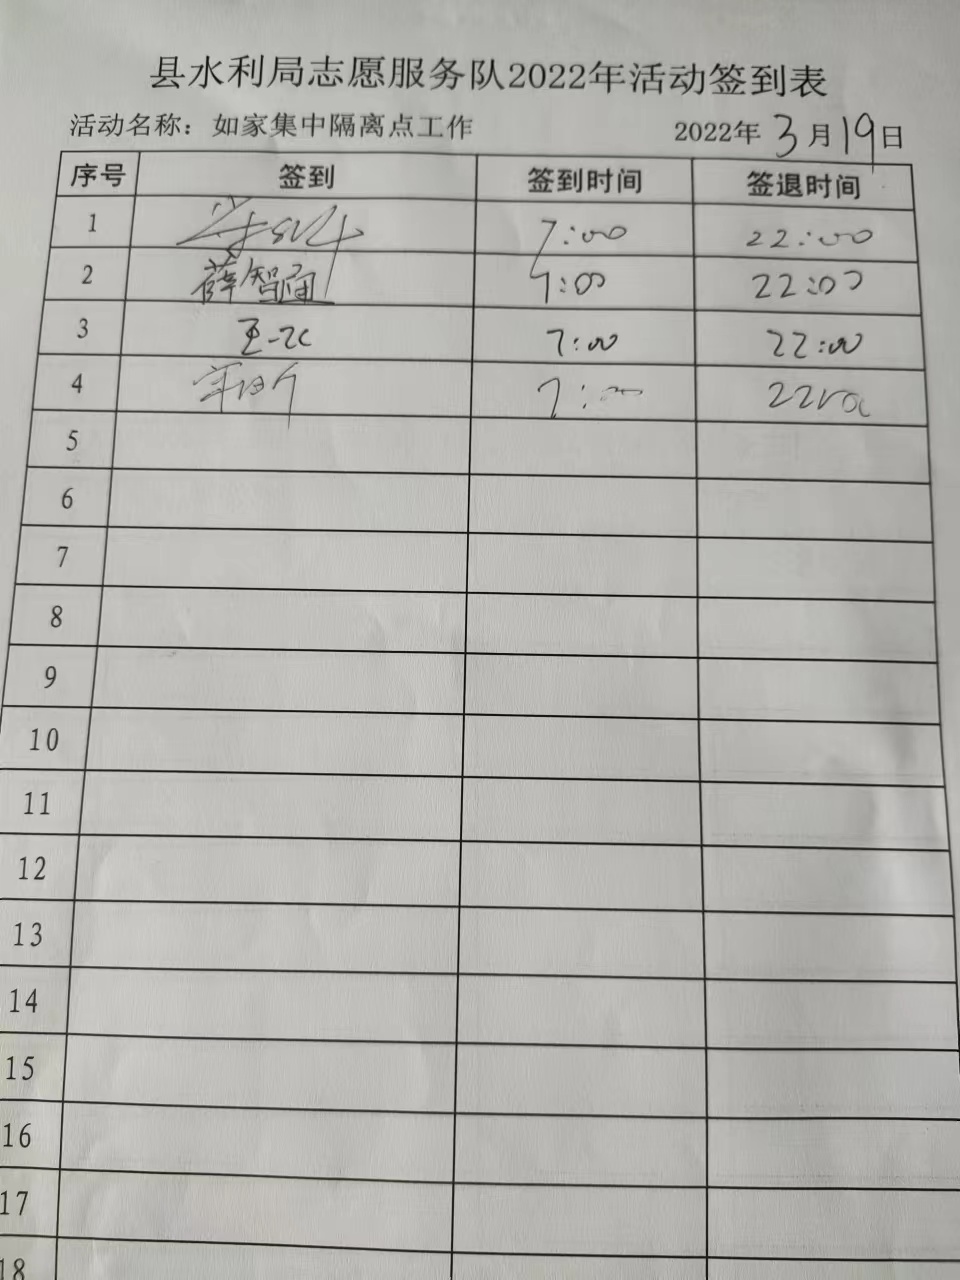 县水利局志愿服务队2022年活动签到表
活动名称：如家集中隔离点工作 2022年3月19日
序号 签到 签到时间 签退时间
1 7:00 22:00
2 薛智通 7:00 22:00
3 7:00 22:00
4 7:00 22:00
5
6
7
8
9
10
11
12
13
14
15
16
17
18